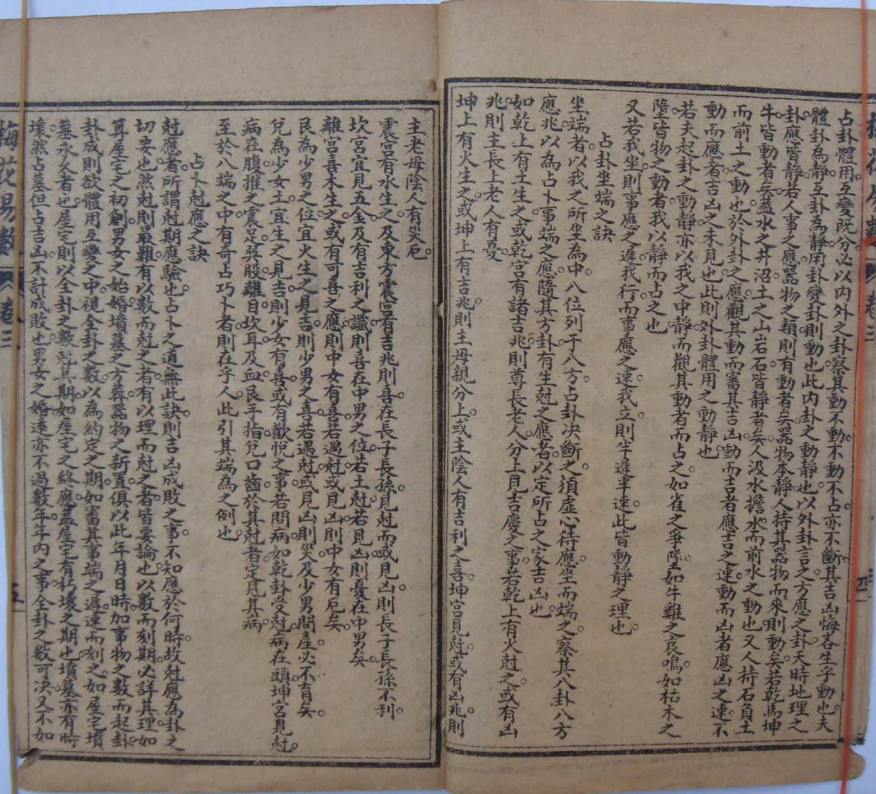 占卦體用互變既分必以內外之卦察其動不動不動不占亦不斷其吉凶悔吝生乎動也夫
體卦為靜互卦為靜用卦變卦則動也此內卦之動靜也以外卦言之方應之卦天時地理之
卦應皆靜若人事之應器物之類則有動者矣器物本靜人持其器物而來則動矣若乾馬坤
牛皆動者矣蓋水之井沼土之山岩石皆靜者矣人汲水擔水而前水之動也又人持石負土
而前土之動也於外卦之應觀其動而審其吉凶動而吉者應吉之速動而凶者應凶之速不
動而應者吉凶之未見也此則外卦體用之動靜也
若夫起卦之動靜亦以我之中靜而觀其動者而占之如雀之爭墜如牛雞之哀鳴如枯木之
墜皆物之動者我以靜而占之也
又若我坐則事應之遲我行而事應之速我立則半遲半速此皆動靜之理也
占卦坐端之訣
坐端者以我之所坐為中八位列于八方占卦決斷之須虛心待應坐而端之察其八卦八方
應兆以為占卜事端之應隨其方卦有生尅之應者以定所占之家吉凶也
如乾上有土生之或乾宮有諸吉兆則尊長老人分上見吉慶之事若乾上有火尅之或有凶
兆則主長上老人有憂
坤上有火生之或坤上有吉兆則主母親分上或主陰人有吉利之喜坤宮見尅或有凶兆則
主老母陰人有災厄
震宮有水生之及東方震宮有吉兆則喜在長子長孫見尅而或見凶則長子長孫不利
坎宮宜見五金及有吉利之讖則喜在中男之位若土尅若見凶則憂在中男矣
離宮喜木生之或有可喜之應則中女有喜若遇尅或見凶則中女有厄矣
艮為少男之位宜火生之見吉則少男之喜若遇尅或見凶則災及少男問產必不育矣
兌為少女土宜生之見吉則少女有喜或有歡悅之事若問病如乾卦受尅病在頭坤宮見尅
病在腹推之震足巽股離目坎耳及血艮手指兌口齒於其尅者定見其病
至於八端之中有奇占巧卜者則在乎人此引其端為之例也
占卜尅應之訣
尅應者所謂尅期應驗也占卜之道無此訣則吉凶成敗之事不知應於何時故尅應為卦之
切要也然尅則最難有以數而尅之者有以理而尅之者皆要論也以數而刻期必詳其理如
算屋宅之初創男女之始婚墳墓之方葬器物之新置俱以此年月日時加事物之數而起卦
卦成則欲體用互變之中視全卦之數以為約定之期如審其事端之遲速而刻之如屋宅墳
墓永久者也屋宅則以全卦之數尅其期如屋宅之終應蓋屋宅有朽壞之期也墳墓亦有時
壞然占墓但占吉凶不計成敗也男女之婚遠亦不過數年年內之事全卦之數可決又不如
梅花易數 卷三 五